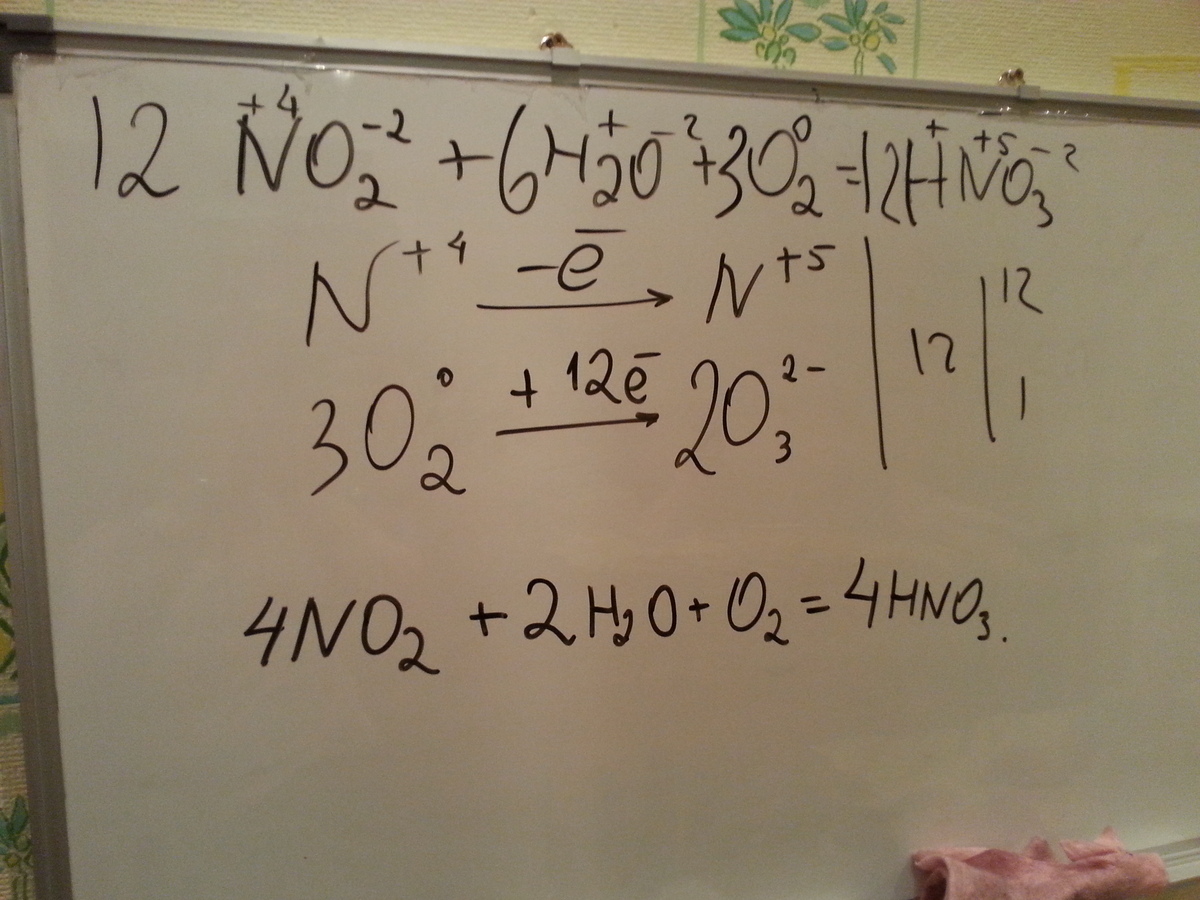 12 N⁺⁴O₂⁻² + 6H₂⁺O⁻² + 3O₂⁰ = 12H⁺N⁺⁵O₃⁻²
N⁺⁴ −ē → N⁺⁵ | 12 | 12
3O₂⁰ + 12ē → 2O₃²⁻ | | 1
4NO₂ + 2H₂O + O₂ = 4HNO₃.